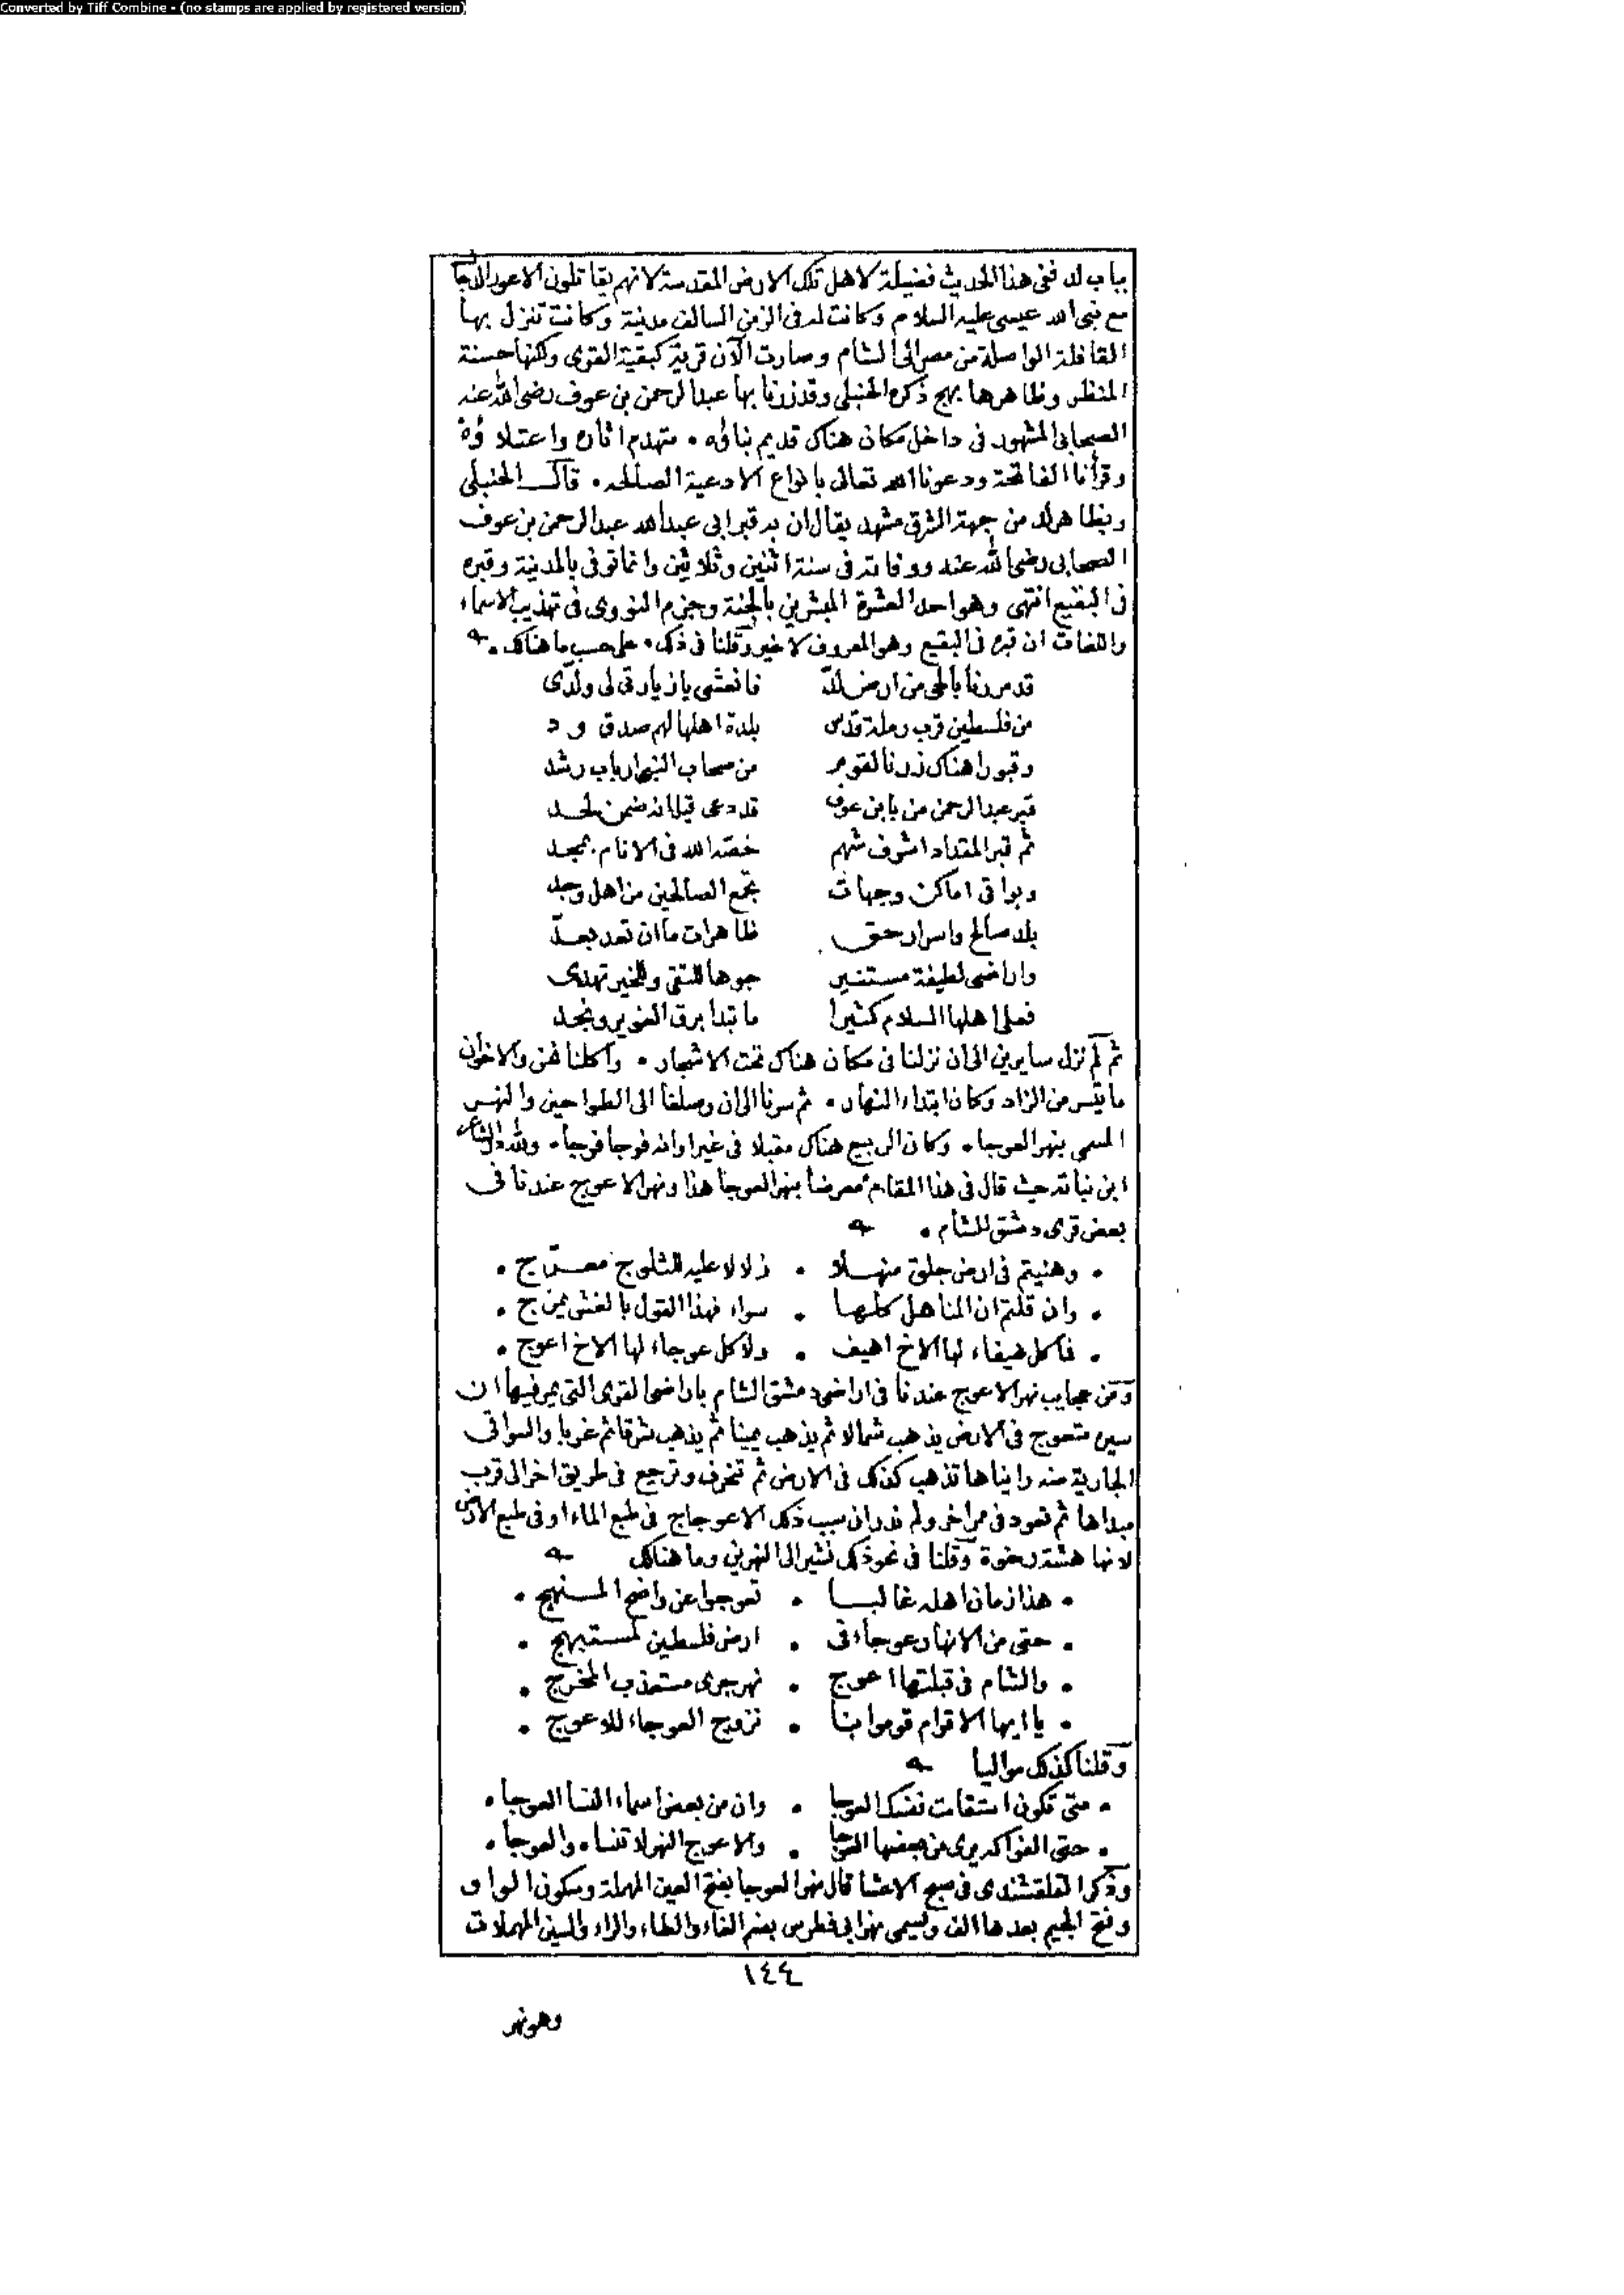 Converted by Tiff Combine - (no stamps are applied by registered version)
بباب لد ففي هذا الحديث فضيلة لاهل تلك الارض المقدسة لانهم يقاتلون الاعور الدجا
مع نبي الله عيسى عليه السلام وكانت لد في الزمن السالف مدينة وكانت تنزل بها
القافلة الواصلة من مصر الى الشام وصارت الآن قرية كبقية القرى ولكنها حسنة
المنظر وظاهرها بهج ذكره الحنبلي وقد زرنا بها عبد الرحمن بن عوف رضي الله عنه
الصحابي المشهور في داخل مكان هناك قديم بناؤه . متهدم اثاره واعتلاؤه
وقرأنا الفاتحة ودعونا الله تعالى بانواع الادعية الصالحه . قال الحنبلي
وبظاهر لد من جهة الشرق مشهد يقال ان به قبر ابي عبد الله عبد الرحمن بن عوف
الصحابي رضي الله عنه ووفاته في سنة اثنين وثلاثين وانما توفي بالمدينة وقبره
في البقيع انتهى وهو احد العشرة المبشرين بالجنة وجزم النووي في تهذيب الاسماء
واللغات ان قبره في البقيع وهو المعروف لا غير وقلنا في ذلك . على حسب ما هناك .
قد مررنا بالحي من ارض لد فانعشي يا زيارتي لي ولدي
من فلسطين قرب رملة قدس بلدة اهلها لهم صدق ود
وقبورا هناك زرنا لقوم من صحاب النبي ارباب رشد
قبر عبد الرحمن من بابن عوف قد دعى قيل انه ضمن لحد
ثم قبر المقداد اشرف شهم خصه الله في الانام بمجد
وبواقي اماكن وجهات تجمع الصالحين من اهل وجد
بلد صالح واسرار حق ظاهرات ما ان تعد بعد
واراضي لطيفة مستنير جوها للتقى وللخير تهدي
فعلى اهلها السلام كثيرا ما تبدا برق الغوير ونجد
ثم لم نزل سايرين الى ان نزلنا في مكان هناك تحت الاشجار . واكلنا نحن والاخوان
ما تيسر من الزاد وكان ابتداء النهار . ثم سرنا الى ان وصلنا الى الطواحين والنهر
المسمى بنهر العوجا . وكان الربيع هناك مقبلا في غير اوانه فوجا فوجا . ولله در الشاعر
ابن نباته حيث قال في هذا المقام معرضا بنهر العوجا هذا ونهر الاعوج عندنا في
بعض قرى دمشق الشام .
. وهنيتم في ارض جلق منهلا . زلالا عليه للثلوج معرج .
. وان قلتم ان المناهل كلها . سواء فهذا القول بالغش يمزج .
. فما كل هيفاء لها الاخ اهيف . ولا كل عوجاء لها الاخ اعوج .
ومن عجايب نهر الاعوج عندنا في اراضي دمشق الشام باراضي القرى التي يمر فيها ان
سيره متعوج في الارض يذهب شمالا ثم يذهب يمينا ثم يذهب شرقا ثم غربا والسواقي
الجارية منه رايناها تذهب كذلك في الارض ثم تنحرف وترجع في طريق اخر الى قرب
مبداها ثم تعود في مر اخر ولم ندر ان سبب ذلك الاعوجاج في طبع الماء او في طبع الارض
لانها هشة رخوة وقلنا في نحو ذلك نشير الى النهرين وما هنالك
. هذا زمان اهله غالبا . تعوجوا عن واضح المنهج .
. حتى من الانهار عوجاء في . ارض فلسطين لمستبهج .
. والشام في قبلتها اعوج . نهر جرى مستعذب المخرج .
. يا ايها الاقوام قوموا بنا . نزوج العوجاء للاعوج .
وقلنا كذلك مواليا
. متى تكون استقامت نفسك العوجا . وان من بعض اسماء النسا العوجا .
. حتى الفواكه يرى من بعضها العوجا . والاعوج النهر لا تنساه والعوجا .
وذكر القلقشندي في صبح الاعشا قال نهر العوجا بفتح العين المهملة وسكون الواو
وفتح الجيم بعدها الف ويسمى نهر ابي فطرس بضم الفاء والطاء والراء والسين المهملات
١٤٤
وهو نهر